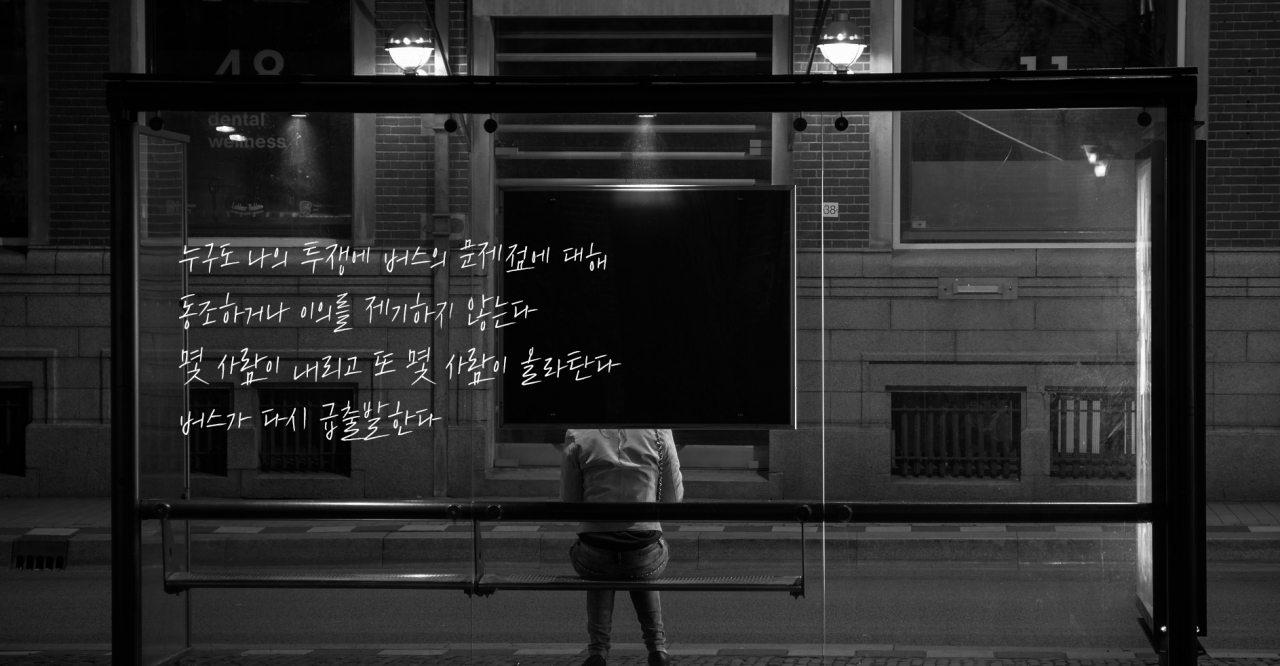 48
11
dental
wellness
38
누구도 나의 투쟁에 버스의 문제점에 대해
동조하거나 이의를 제기하지 않는다
몇 사람이 내리고 또 몇 사람이 올라탄다
버스가 다시 급출발한다